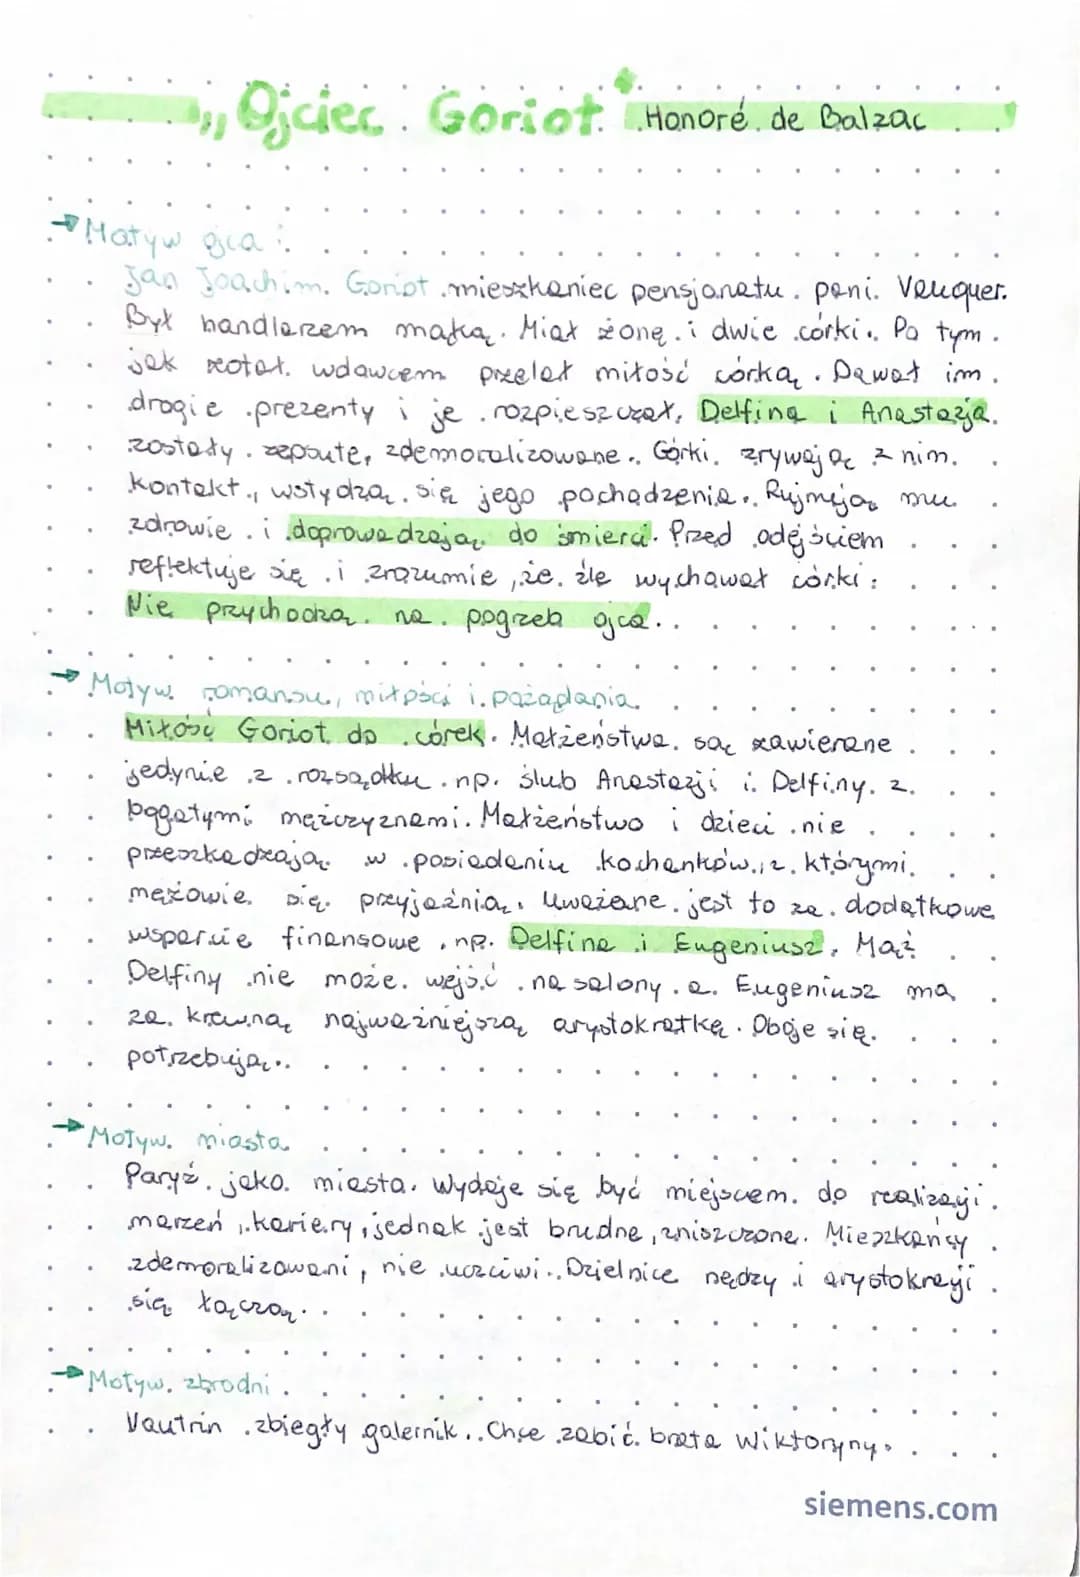 „Ojciec Goriot" Honoré de Balzac
→ Motyw ojca:
Jan Joachim Goriot mieszkaniec pensjonatu pani Vauquer.
Był handlarzem mąką. Miał żonę i dwie córki. Po tym
jak został wdawcem przelał miłość córką. Dawał im
drogie prezenty i je rozpieszczał, Delfina i Anastazja
zostały zepsute, zdemoralizowane. Córki zrywają z nim
kontakt, wstydzą się jego pochodzenia. Rujnują mu
zdrowie i doprowadzają do śmierci. Przed odejściem
reflektuje się i zrozumie, że źle wychował córki:
Nie przychodzą na pogrzeb ojca.
→ Motyw romansu, miłości i pożądania
Miłość Goriot do córek. Małżeństwa są zawierane
jedynie z rozsądku np. ślub Anastazji i Delfiny z
bogatymi mężczyznami. Małżeństwo i dzieci nie
przeszkadzają w posiadaniu kochanków, z którymi
mężowie się przyjaźnią. Uważane jest to za dodatkowe
wsparcie finansowe, np. Delfina i Eugeniusz. Mąż
Delfiny nie może wejść na salony a Eugeniusz ma
za krewną najważniejszą arystokratkę. Oboje się
potrzebują.
→ Motyw miasta
Paryż jako miasta wydaje się być miejscem do realizacji
marzeń, kariery, jednak jest brudne, zniszczone. Mieszkańcy
zdemoralizowani, nie uczciwi. Dzielnice nędzy i arystokracji
się łączą.
→ Motyw zbrodni
Vautrin zbiegły galernik. Chce zabić brata Wiktoryny.
siemens.com